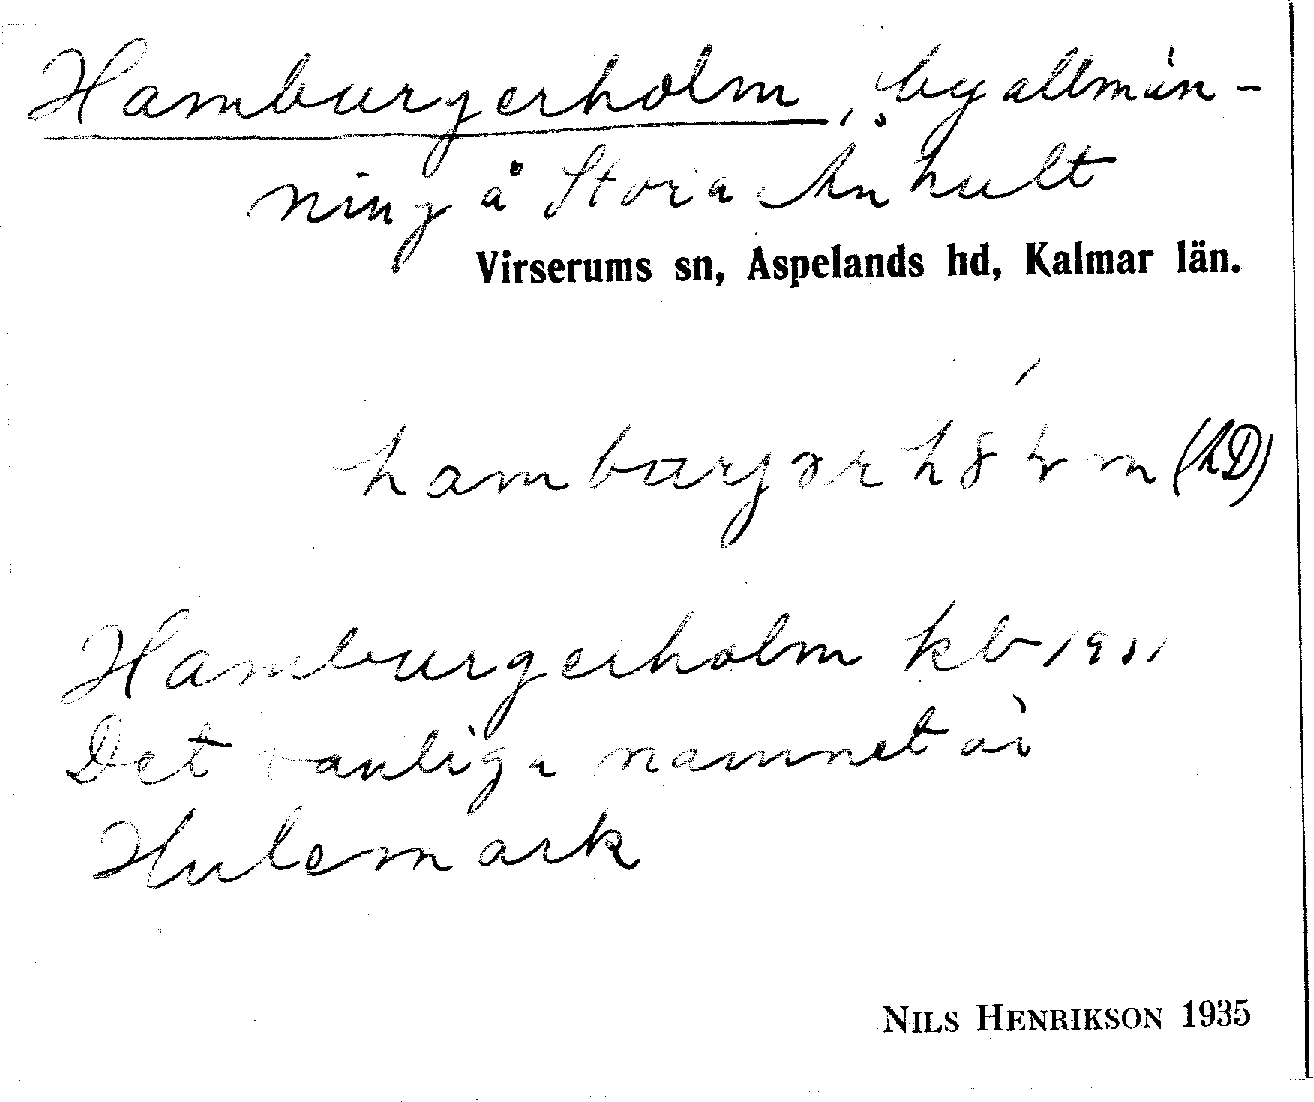 Hamburgerholm, byallmän-
ning å Stora Ånhult
Virserums sn, Aspelands hd, Kalmar län.
Hamburgerholm kb 1911
Det vanliga namnet är
Hulemark
NILS HENRIKSON 1935